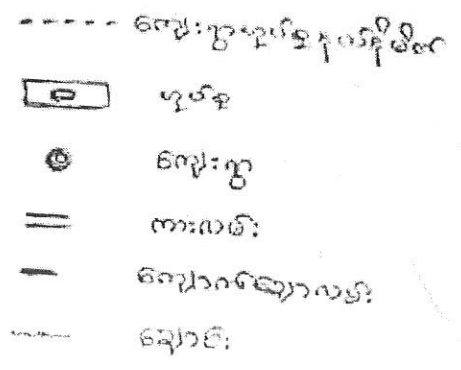 ကျေးရွာဟူပ်စုနယ်နိမိတ်
ဟူပ်စု
ကျေးရွာ
ကားလမ်း
ကျောက်ချောလမ်း
ချောင်း